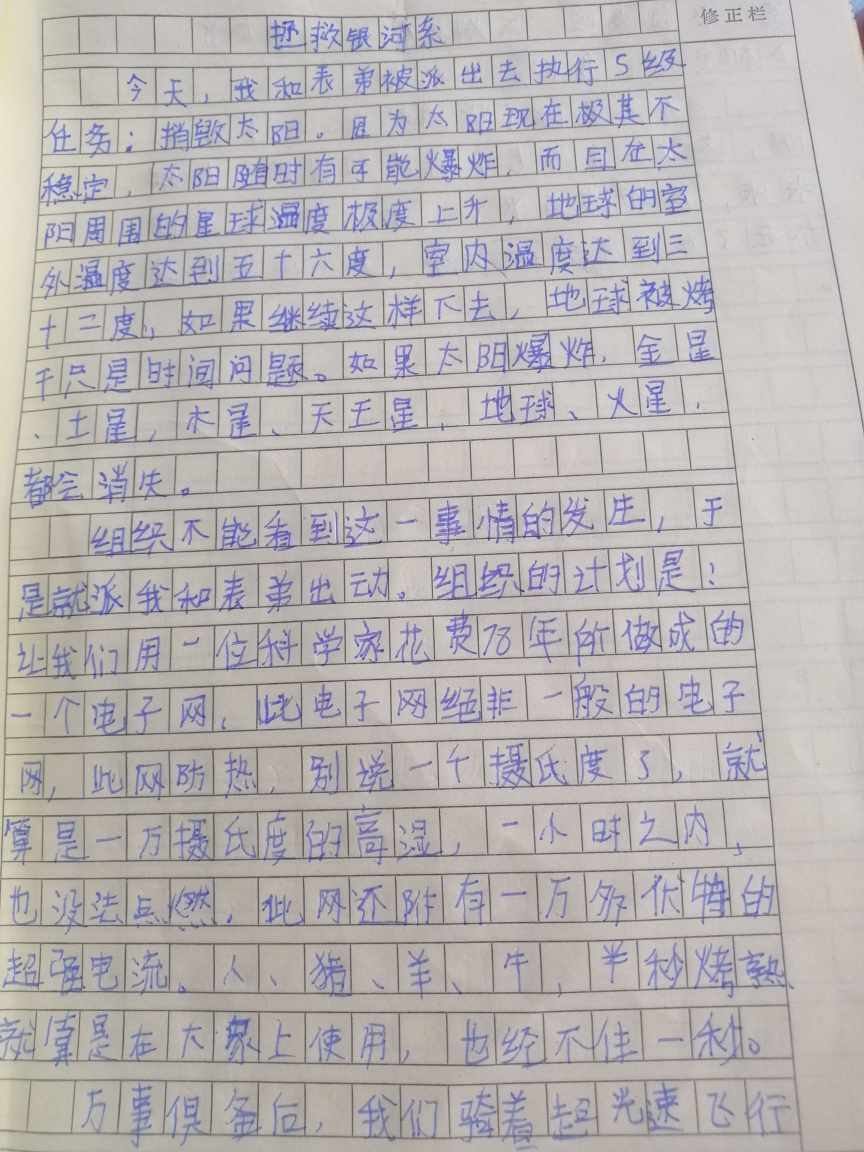 修正栏
拯救银河系
今天，我和表弟被派出去执行S级
任务：捎毁太阳。因为太阳现在极其不
稳定，太阳随时有可能爆炸，而且在太
阳周围的星球温度极度上升，地球的室
外温度达到五十六度，室内温度达到三
十二度，如果继续这样下去，地球被烤
干只是时间问题。如果太阳爆炸，金星
、土星，木星、天王星、地球、火星，
都会消失。
组织不能看到这一事情的发生，于
是就派我和表弟出动。组织的计划是：
让我们用一位科学家花费78年所做成的
一个电子网，此电子网绝非一般的电子
网，此网防热，别说一千摄氏度了，就
算是一万摄氏度的高温，一小时之内，
也没法点燃，此网还附有一万多伏特的
超强电流。人、猪、羊、牛，半秒烤熟
就算是在大象上使用，也经不住一秒。
万事俱备后，我们骑着超光速飞行